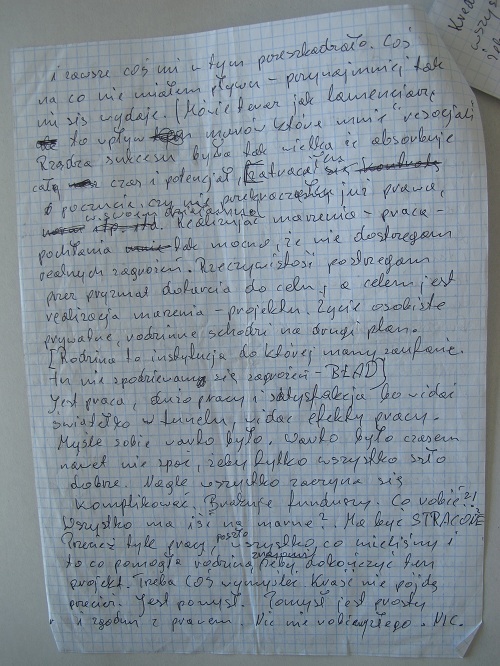 i zawsze coś mi w tym przeszkadzało. Coś
na co nie miałem wpływu - przynajmniej tak
mi się wydaje. (Mówię teraz jak
to wpływ mamów które mnie "resocjali
Rządza sukcesu była tak wielka że absorbuje
cały czas i potencjał, zatracał się
o poczucie czy nie przekraczasz już prawa,
w swoim działaniu Realizując marzenia - praca -
pochłania tak mocno, że nie dostrzegam
realnych zagrożeń. Rzeczywistość postrzegam
przez pryzmat dotarcia do celu, a celem jest
realizacja marzenia - projektu. Życie osobiste
prywatne, rodzinne schodzi na drugi plan.
[Rodzina to instytucja do której mamy zaufanie.
tu nie spodziewamy się zagrożeń - BŁĄD]
Jest praca, dużo pracy i satysfakcja bo widać
światełko w tunelu, widać efekty pracy.
Myślę sobie warto było. Warto było czasem
nawet nie spać, żeby tylko wszystko szło
dobrze. Nagle wszystko zaczyna się
komplikować. Brakuje funduszy. Co robić?!
Wszystko ma iść na marne?. Ma być STRACONE
Przecież tyle pracy, poszło wszystko, co mieliśmy i
to co pomogła rodzina, znajomi żeby dokończyć ten
projekt. Trzeba coś wymyśleć. Kraść nie pójdę
przecież. Jest pomysł. Pomysł jest prosty
i zgodny z prawem. Nic nie robię złego. NIC.